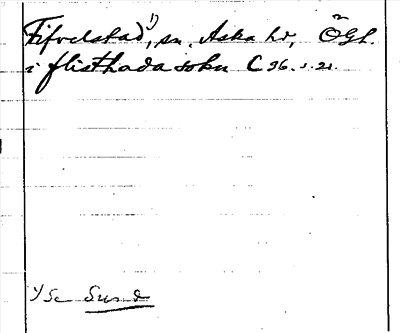 Fifvelstad ¹), sn. Aska hd, ÖGL.
i flisthada sokn C 36 s. 21.
¹) Se Sund